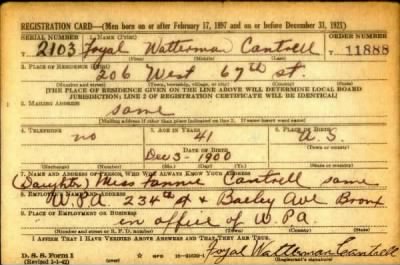 REGISTRATION CARD—(Men born on or after February 17, 1897 and on or before December 31, 1921)
SERIAL NUMBER 1. NAME (Print) ORDER NUMBER
T 2103 Foyal Watterman Cantrell T 11888
2. PLACE OF RESIDENCE (Print)
206 West 67th st.
(Number and street) (Town, township, village, or city) (County) (State)
[THE PLACE OF RESIDENCE GIVEN ON THE LINE ABOVE WILL DETERMINE LOCAL BOARD
JURISDICTION; LINE 2 OF REGISTRATION CERTIFICATE WILL BE IDENTICAL]
3. MAILING ADDRESS
same
[Mailing address if other than place indicated on line 2. If same insert word same]
4. TELEPHONE 5. AGE IN YEARS 6. PLACE OF BIRTH
no 41 U.S.
DATE OF BIRTH
Dec 3 - 1900
(Exchange) (Number) (Mo.) (Day) (Yr.) (State or country)
7. NAME AND ADDRESS OF PERSON WHO WILL ALWAYS KNOW YOUR ADDRESS
(Daughter) Miss Fannie Cantrell same
8. EMPLOYER'S NAME AND ADDRESS
W.P.A. 234th st & Bailey Ave Bronx
9. PLACE OF EMPLOYMENT OR BUSINESS
in office of W.P.A.
(Number and street or R. F. D. number) (Town) (County) (State)
I AFFIRM THAT I HAVE VERIFIED ABOVE ANSWERS AND THAT THEY ARE TRUE.
D. S. S. Form 1 Foyal Watterman Cantrell
(Revised 1-1-42) (over) 16—21630-1 (Registrant's signature)